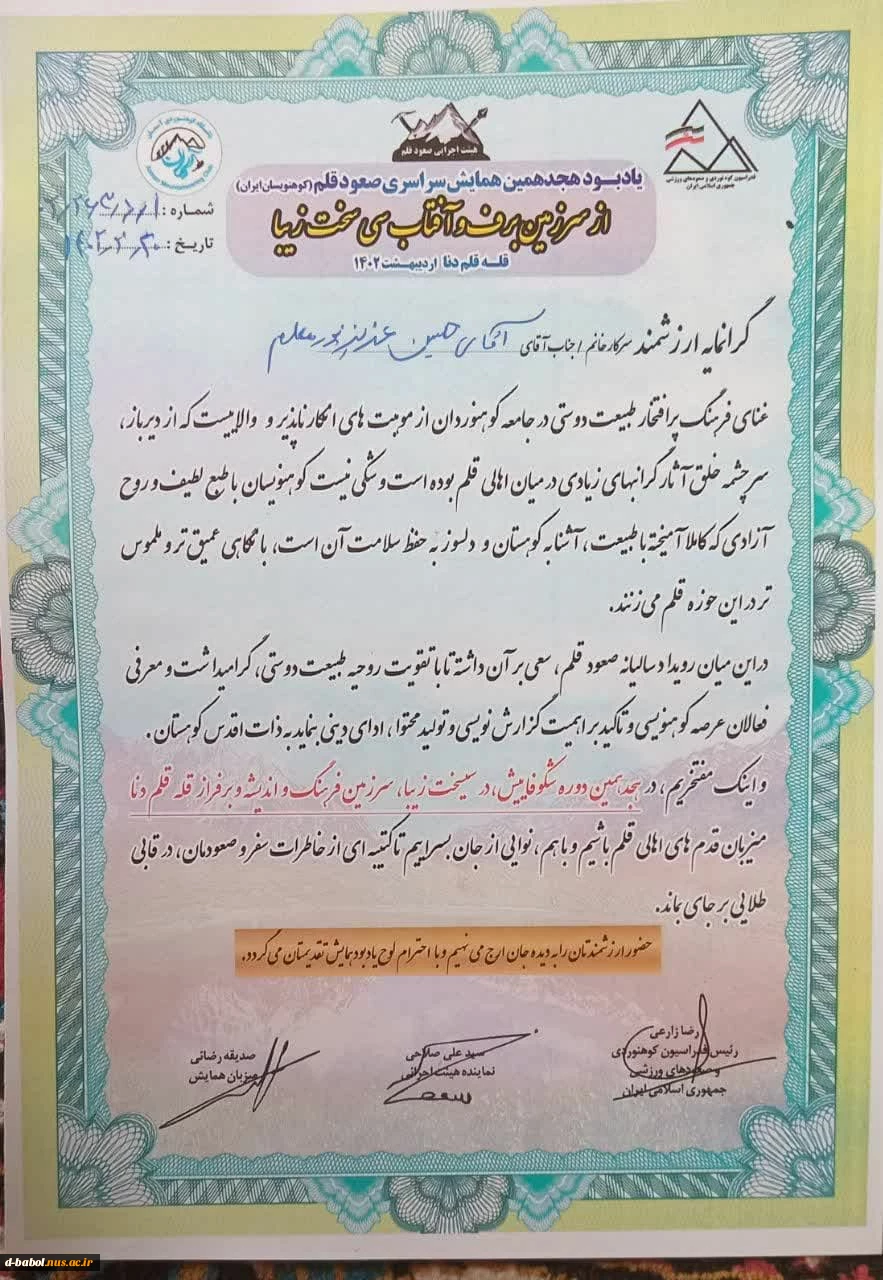 هیئت اجرایی صعود قلم
فدراسیون کوه نوردی و صعودهای ورزشی
جمهوری اسلامی ایران
یادبود هجدهمین همایش سراسری صعود قلم (کوهنویسان ایران)
از سرزمین برف و آفتاب سی سخت زیبا
قله قلم دنا اردیبهشت ۱۴۰۲
شماره :
تاریخ : ۱۴۰۲/۲/۳۰
گرانمایه ارزشمند سرکار خانم / جناب آقای آقای حسین عزیزپور معلم
غنای فرهنگ پرافتخار طبیعت دوستی در جامعه کوهنوردان از موهبت های انکار ناپذیر و والاییست که از دیرباز،
سرچشمه خلق آثار گرانبهای زیادی در میان اهالی قلم بوده است و شکی نیست کوهنویسان با طبع لطیف و روح
آزادی که کاملا آمیخته با طبیعت، آشنا به کوهستان و دلسوز به حفظ سلامت آن است، با نگاهی عمیق تر و ملموس
تر در این حوزه قلم می زنند.
در این میان رویداد سالیانه صعود قلم، سعی بر آن داشته تا با تقویت روحیه طبیعت دوستی، گرامیداشت و معرفی
فعالان عرصه کوهنویسی و تاکید بر اهمیت گزارش نویسی و تولید محتوا، ادای دینی بنماید به ذات اقدس کوهستان.
و اینک مفتخریم، در هجدهمین دوره شکوفاییش، در سیسخت زیبا، سرزمین فرهنگ و اندیشه و بر فراز قله قلم دنا
میزبان قدم های اهالی قلم باشیم و با هم، نوایی از جان بسراییم تا کتیبه ای از خاطرات سفر و صعودمان، در قابی
طلایی بر جای بماند.
حضور ارزشمندتان را به دیده جان ارج می نهیم و با احترام لوح یادبود همایش تقدیمتان می گردد.
رضا زارعی
رئیس فدراسیون کوهنوردی
و صعودهای ورزشی
جمهوری اسلامی ایران
سید علی صلاحی
نماینده هیئت اجرائی
صدیقه رضائی
میزبان همایش
d-babol.nus.ac.ir